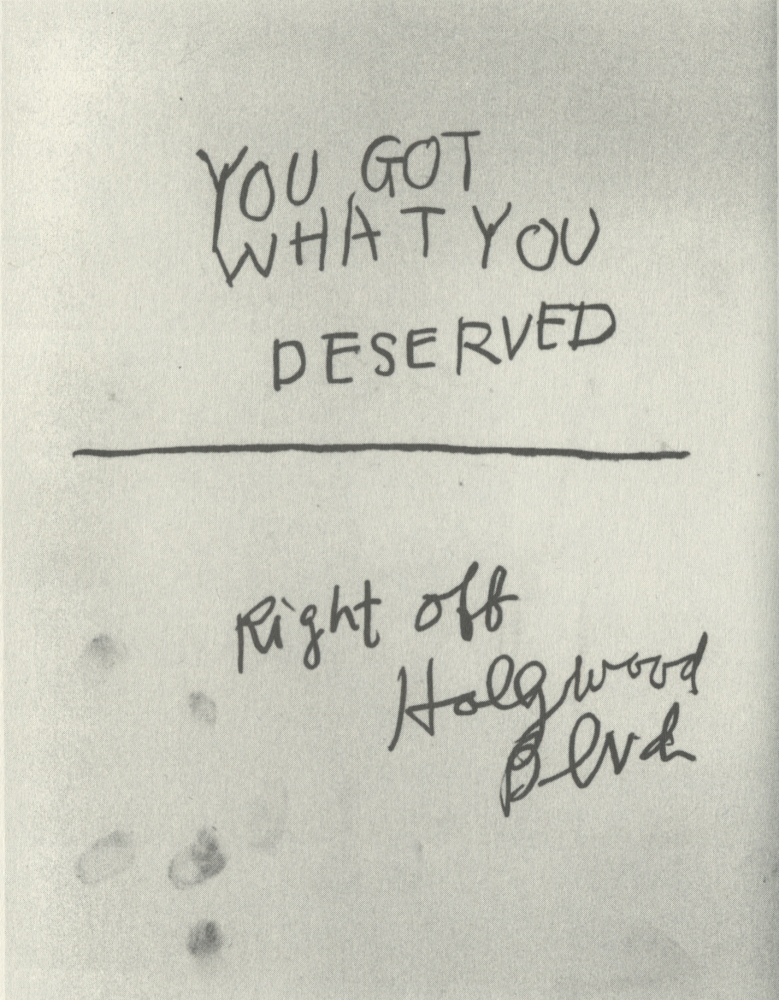 YOU GOT
WHAT YOU
DESERVED
Right off
Hollywood
Blvd